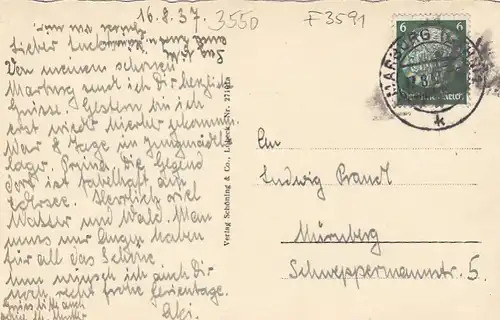 16.8.37.
3550
F3591
Lieber Ludwig!
Von meinem schönen
Marburg send ich Dir herzlich
Grüsse. Gestern bin ich
erst wieder hierher gekommen.
War 8 Tage im Jungmädel
lager. Prima! Die Gegend
dort ist fabelhaft, am
Edersee. Herrlich viel
Wasser und Wald. Man
muss nur Augen haben
für all das Schöne.
Nun wünsch ich auch Dir
noch recht frohe Ferientage.
Grüss bitte auch
Verlag Schöning & Co., Lübeck
6
MARBURG
Deutsches Reich
k
An
Ludwig Prandl
Nürnberg
Schweppermannstr. 5.